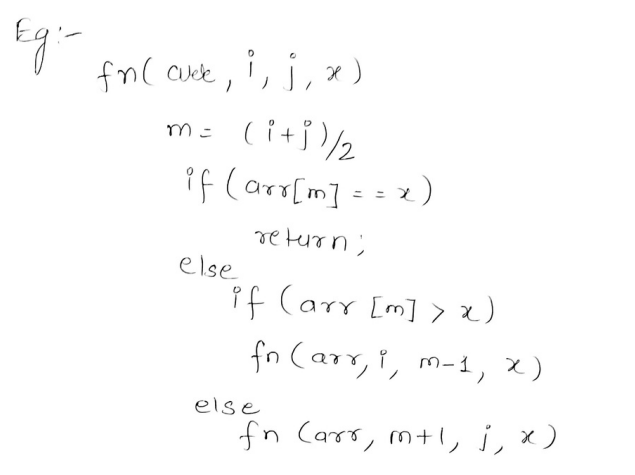 Eg:-
fn( arr, i, j, x)
m = (i+j)/2
if (arr[m] == x)
return;
else
if (arr [m] > x)
fn (arr, i, m-1, x)
else
fn (arr, m+1, j, x)